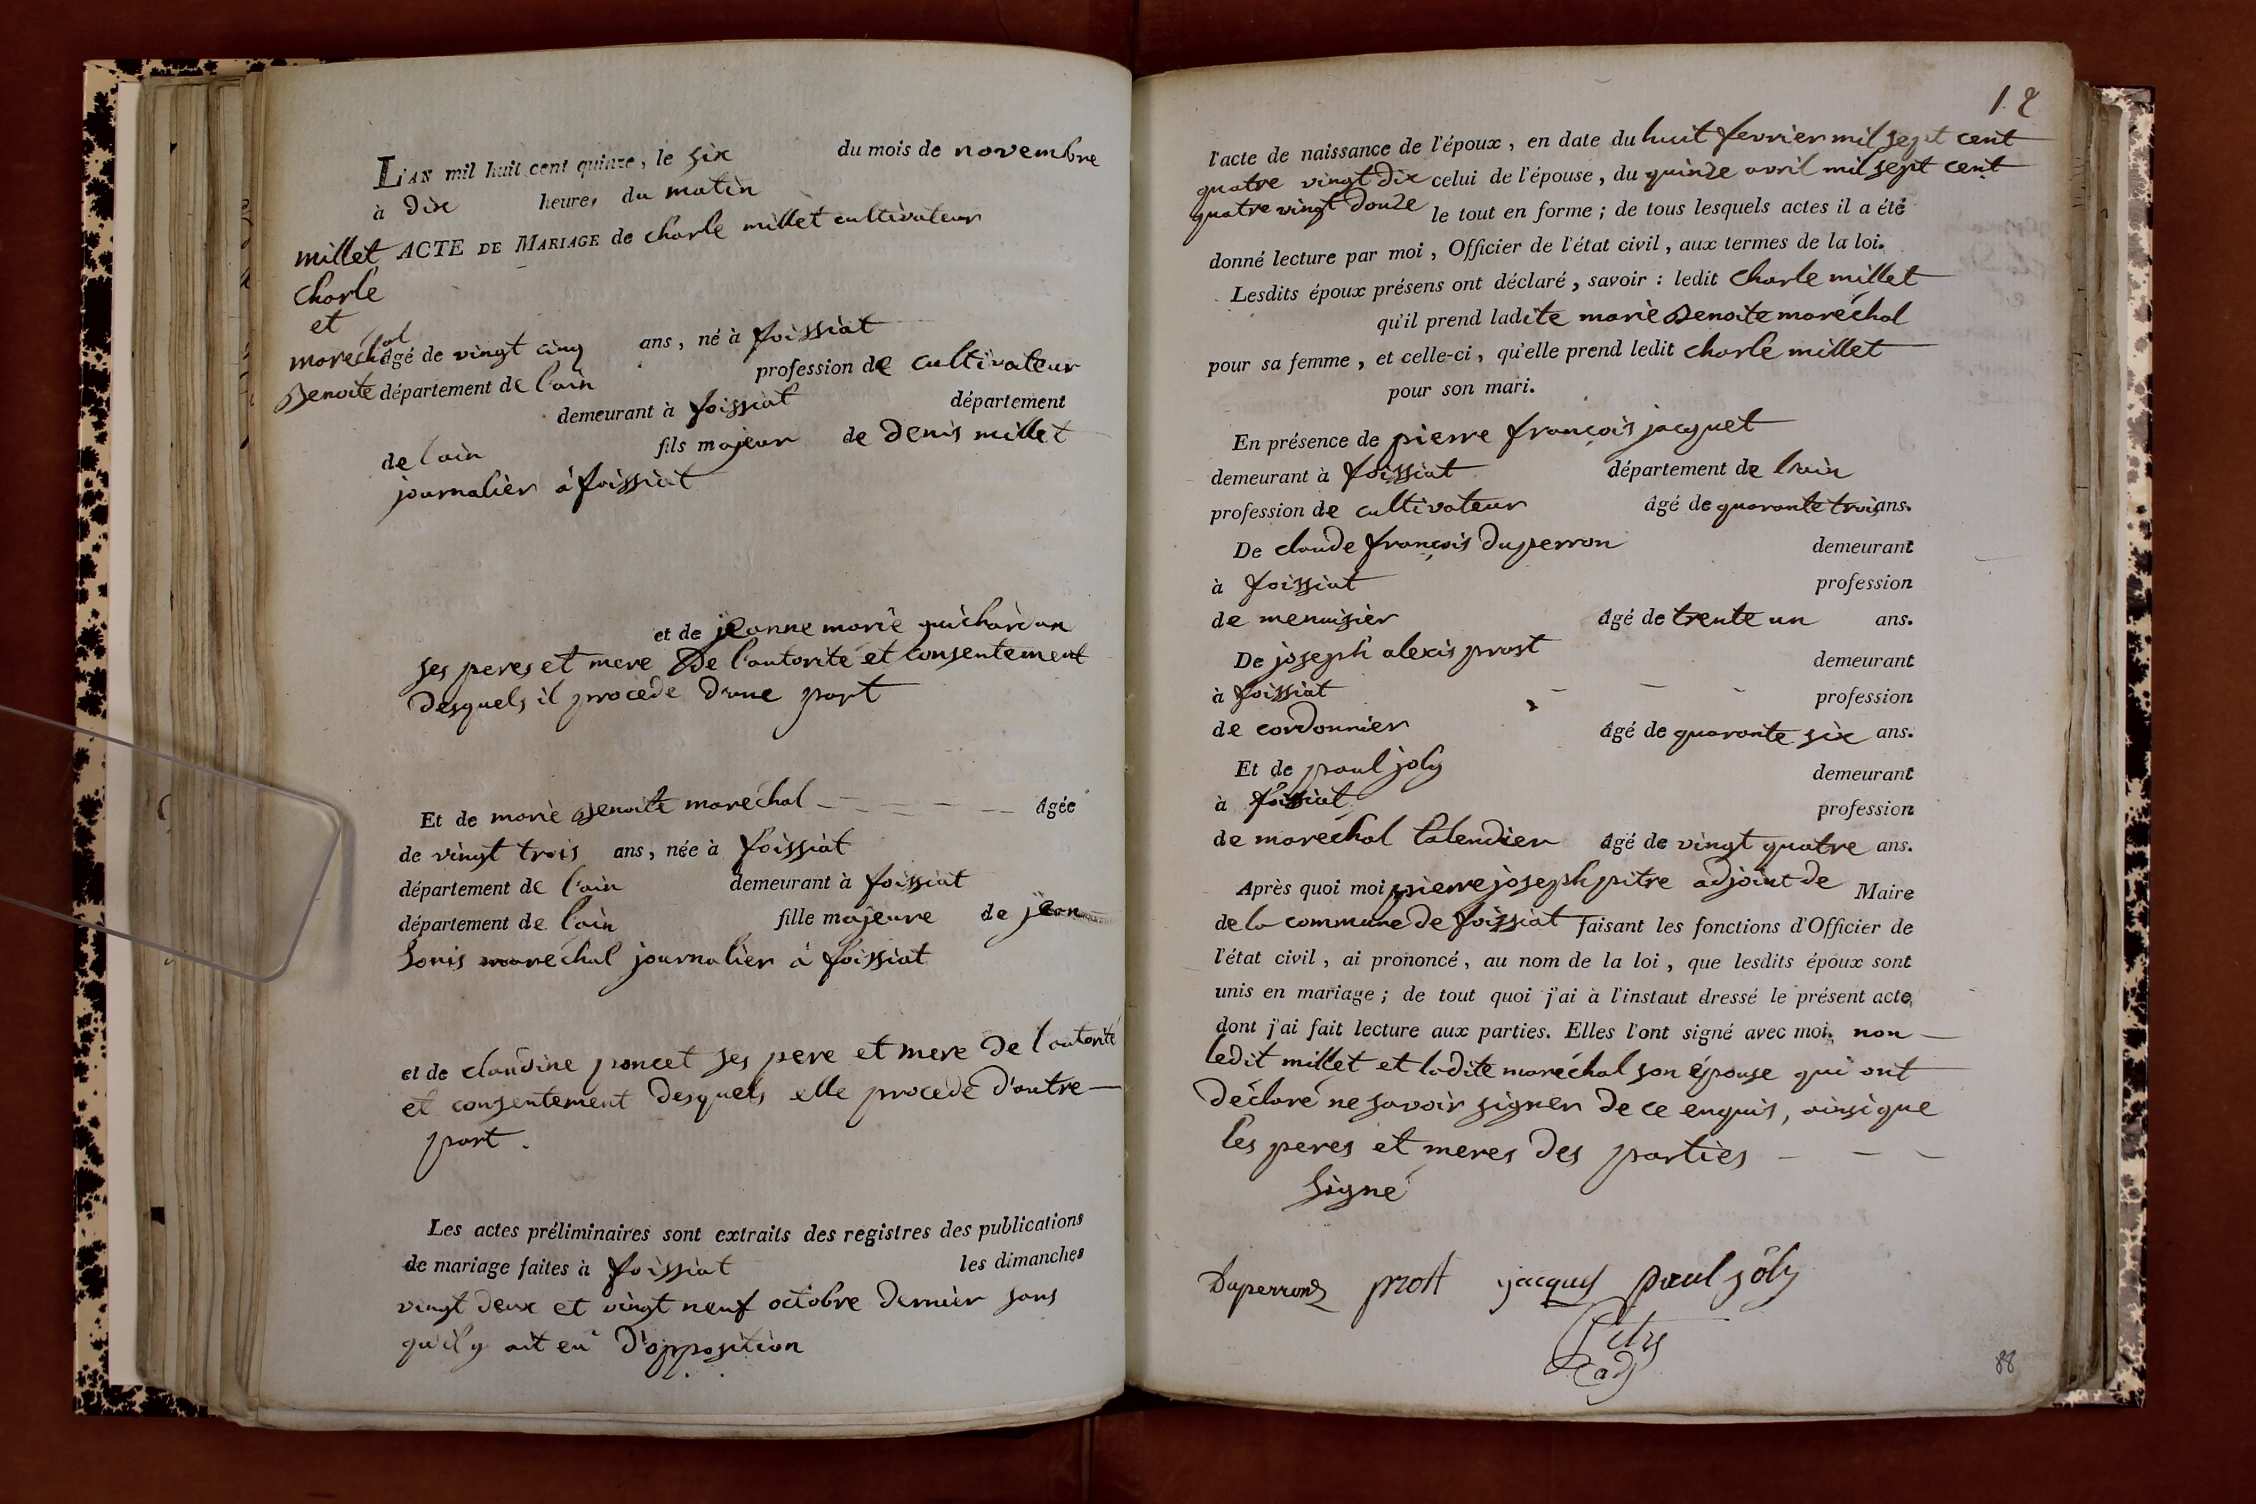 L'AN mil huit cent quinze, le six du mois de novembre
à dix heures du matin
millet ACTE DE MARIAGE de charle millet cultivateur
charle
et
maréchal âgé de vingt cinq ans, né à foissiat
Benoite département de l'ain profession de cultivateur
demeurant à foissiat département
de l'ain fils majeur de Denis millet
journalier à foissiat
et de jeanne marie guichardan
ses peres et mere De l'autorité et consentement
desquels il procede d'une part
Et de marie Benoite maréchal âgée
de vingt trois ans, née à foissiat
département de l'ain demeurant à foissiat
département de l'ain fille majeure de jean
Louis maréchal journalier à foissiat
et de claudine poncet ses pere et mere De l'autorité
et consentement desquels elle procede d'autre
part.
Les actes préliminaires sont extraits des registres des publications
de mariage faites à foissiat les dimanches
vingt deux et vingt neuf octobre dernier sans
qu'il y ait eu d'opposition
12
l'acte de naissance de l'époux, en date du huit fevrier mil sept cent
quatre vingt dix celui de l'épouse, du quinze avril mil sept cent
quatre vingt douze le tout en forme; de tous lesquels actes il a été
donné lecture par moi, Officier de l'état civil, aux termes de la loi.
Lesdits époux présens ont déclaré, savoir: ledit charle millet
qu'il prend ladite marie Benoite maréchal
pour sa femme, et celle-ci, qu'elle prend ledit charle millet
pour son mari.
En présence de pierre françois jacquet
demeurant à foissiat département de l'ain
profession de cultivateur âgé de quarante trois ans.
De claude françois duperron demeurant
à foissiat profession
de menuisier âgé de trente un ans.
De joseph alexis prost demeurant
à foissiat profession
de cordonnier âgé de quarante six ans.
Et de paul joly demeurant
à foissiat profession
de maréchal talendier âgé de vingt quatre ans.
Après quoi moi pierre joseph pitre adjoint de Maire
de la commune de foissiat faisant les fonctions d'Officier de
l'état civil, ai prononcé, au nom de la loi, que lesdits époux sont
unis en mariage; de tout quoi j'ai à l'instaut dressé le présent acte,
dont j'ai fait lecture aux parties. Elles l'ont signé avec moi, non
ledit millet et ladite maréchal son épouse qui ont
déclaré ne savoir signer de ce enquis, ainsi que
les peres et meres des parties
signé
Duperron prost jacquet paul joly
adj
88